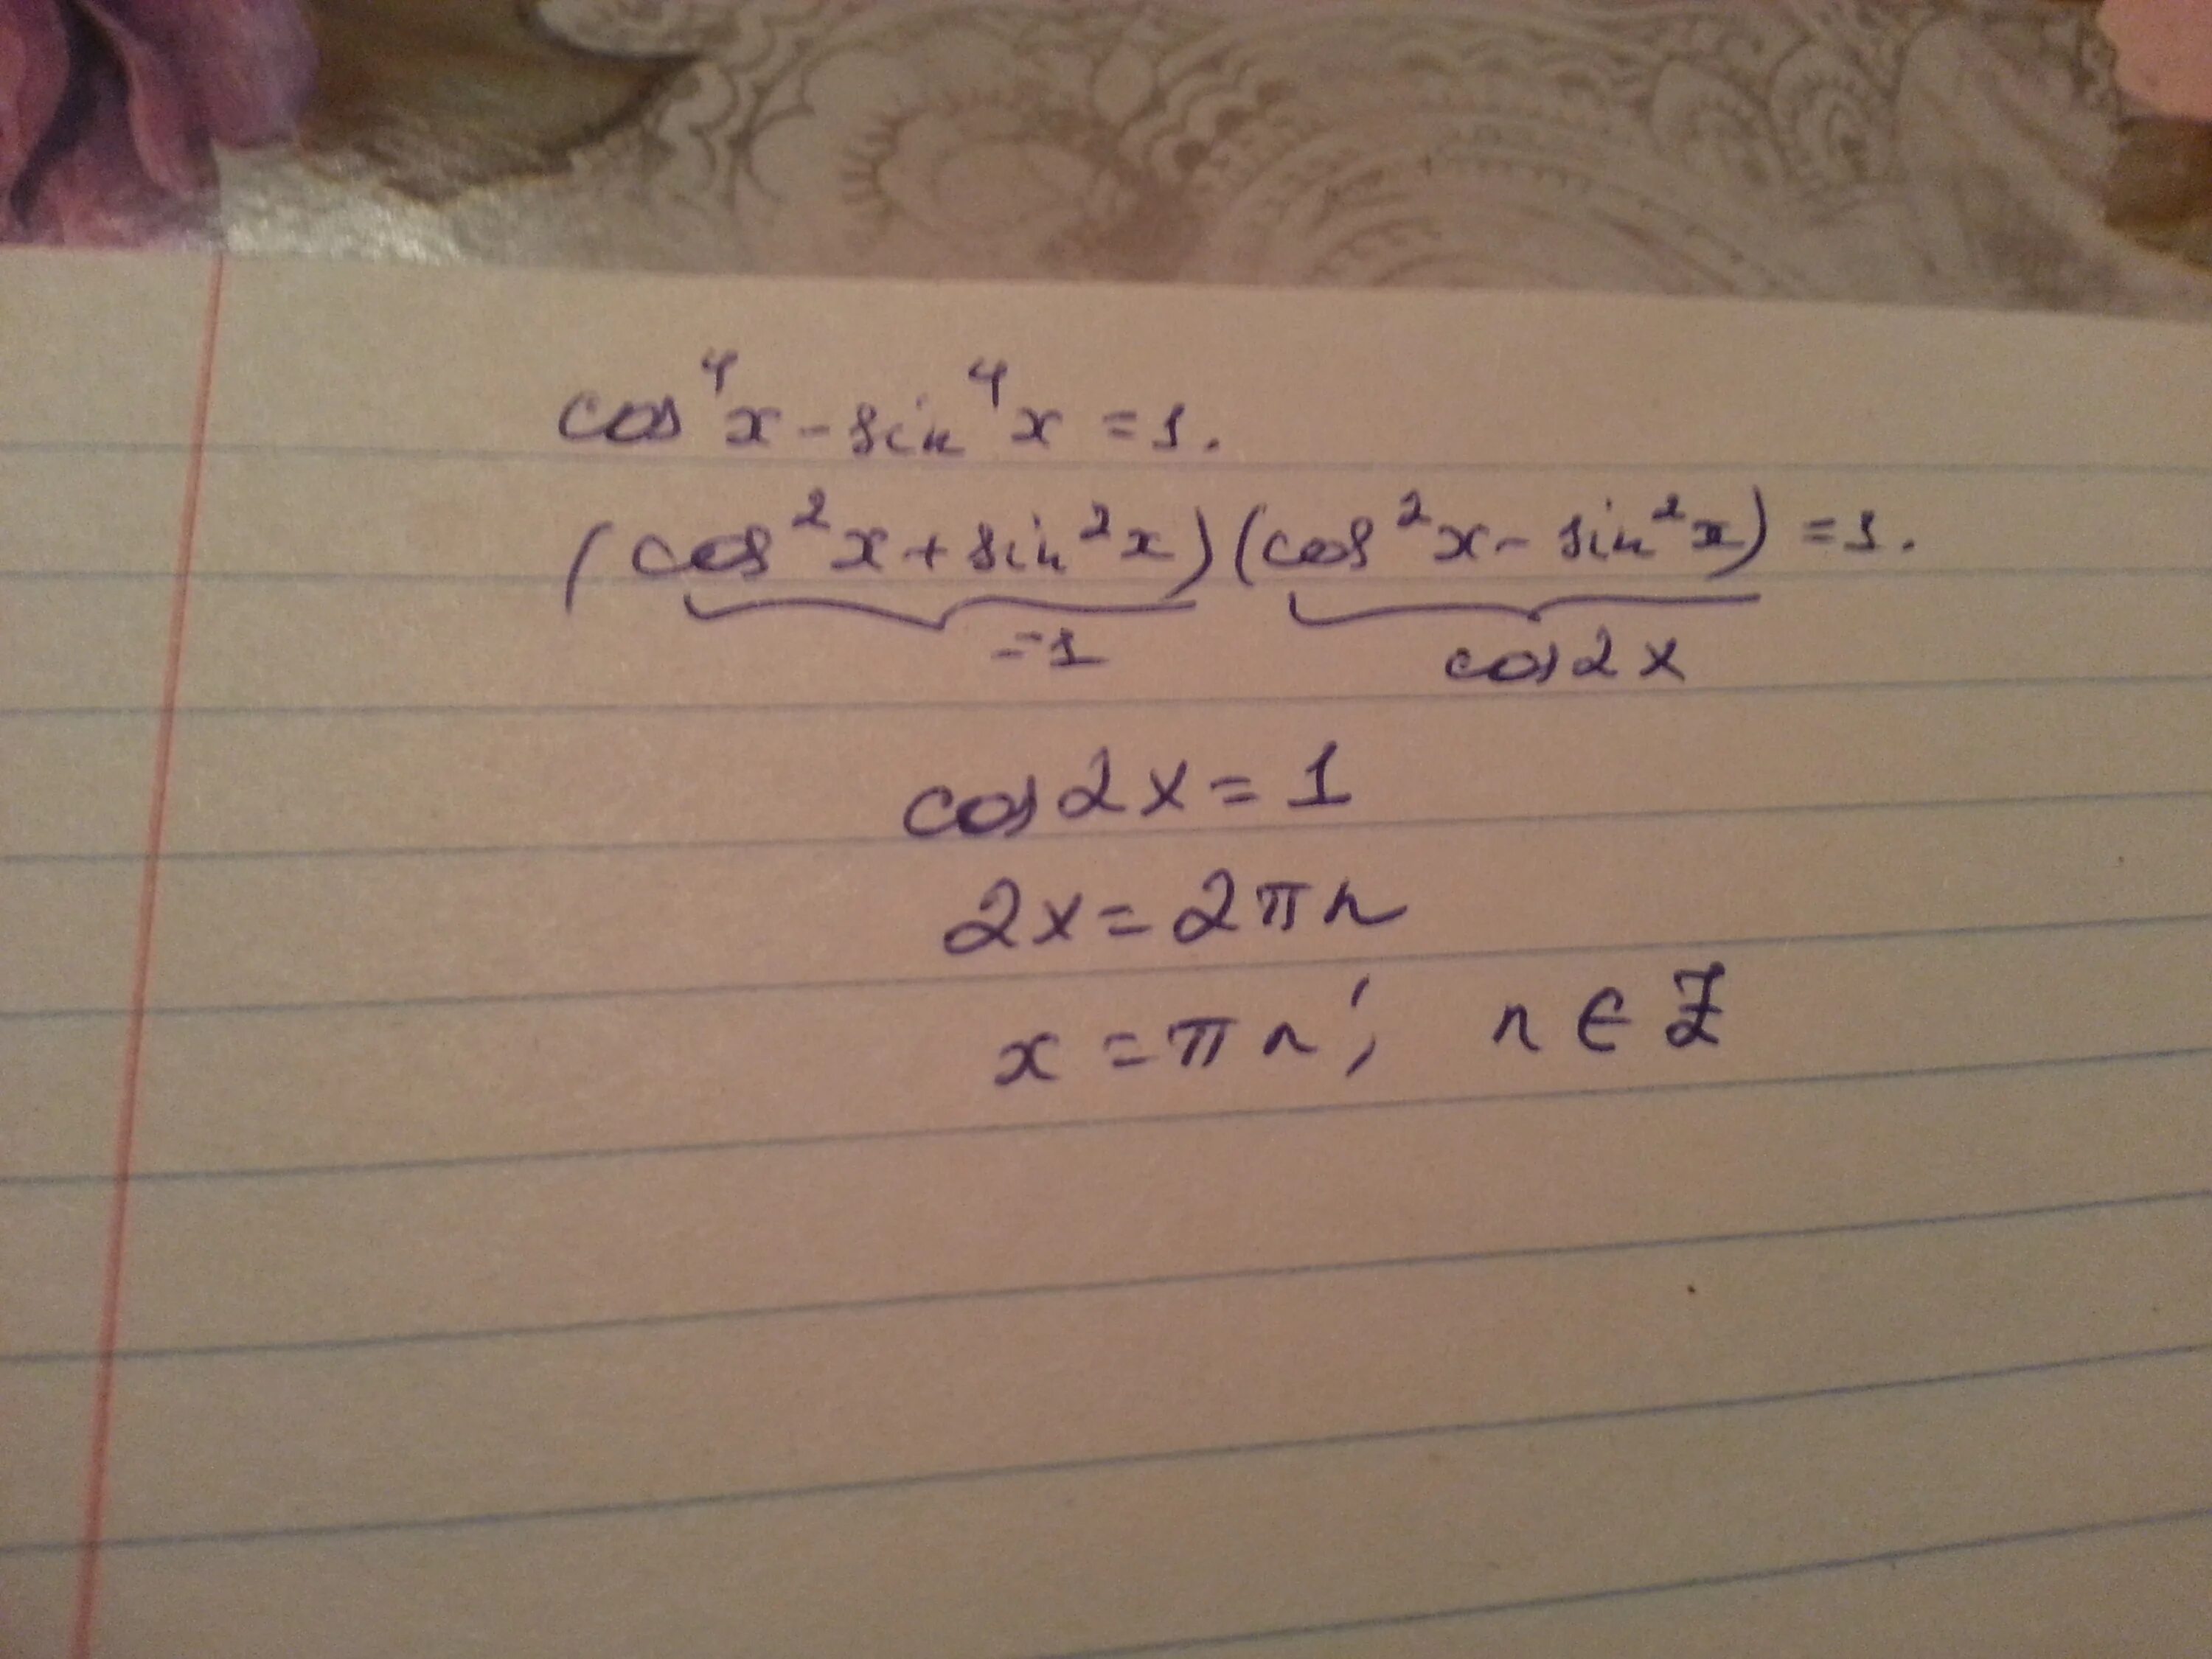 cos⁴x - sin⁴x = 1.
(cos²x + sin²x)(cos²x - sin²x) = 1.
=1 cos2x
cos2x = 1
2x = 2πn
x = πn; n ∈ Z